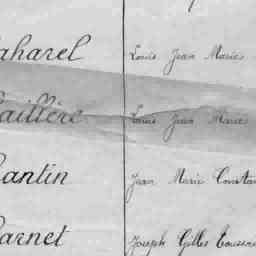 aharel Louis Jean Marie
aillère Louis Jean Marie
antin Jean Marie Constan
arnet Joseph Gilles Toussa